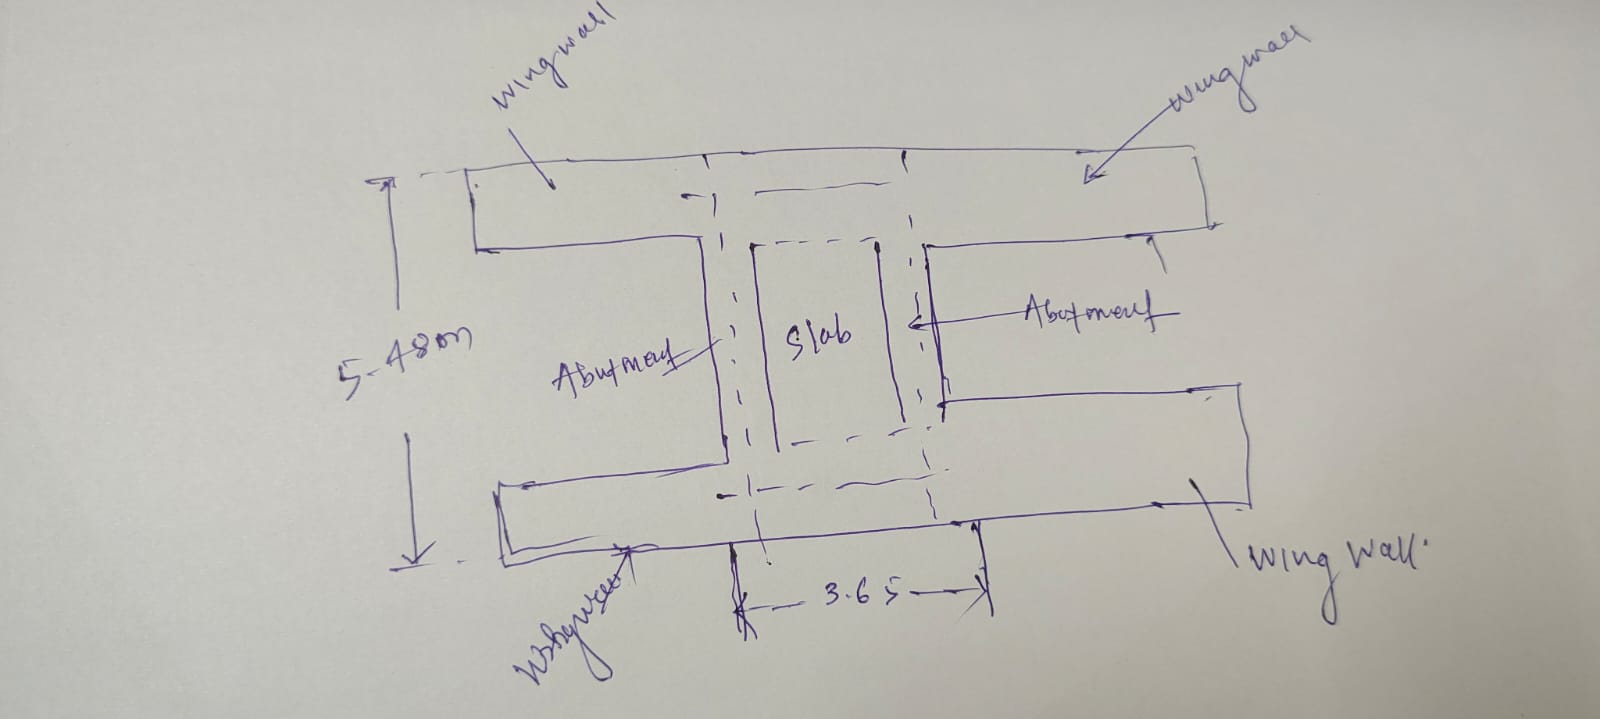 wingwall
wingwall
5.48m
Abutment
Slab
Abutment
3.65
wing wall